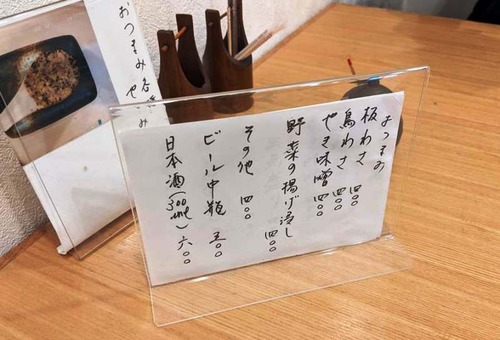 おつまみ
板わさ 四〇〇
鳥わさ 四〇〇
やき味噌 四〇〇
野菜の揚げ浸し 四〇〇
その他
ビール中瓶 五〇〇
日本酒(300ml) 六〇〇
おつまみ各種